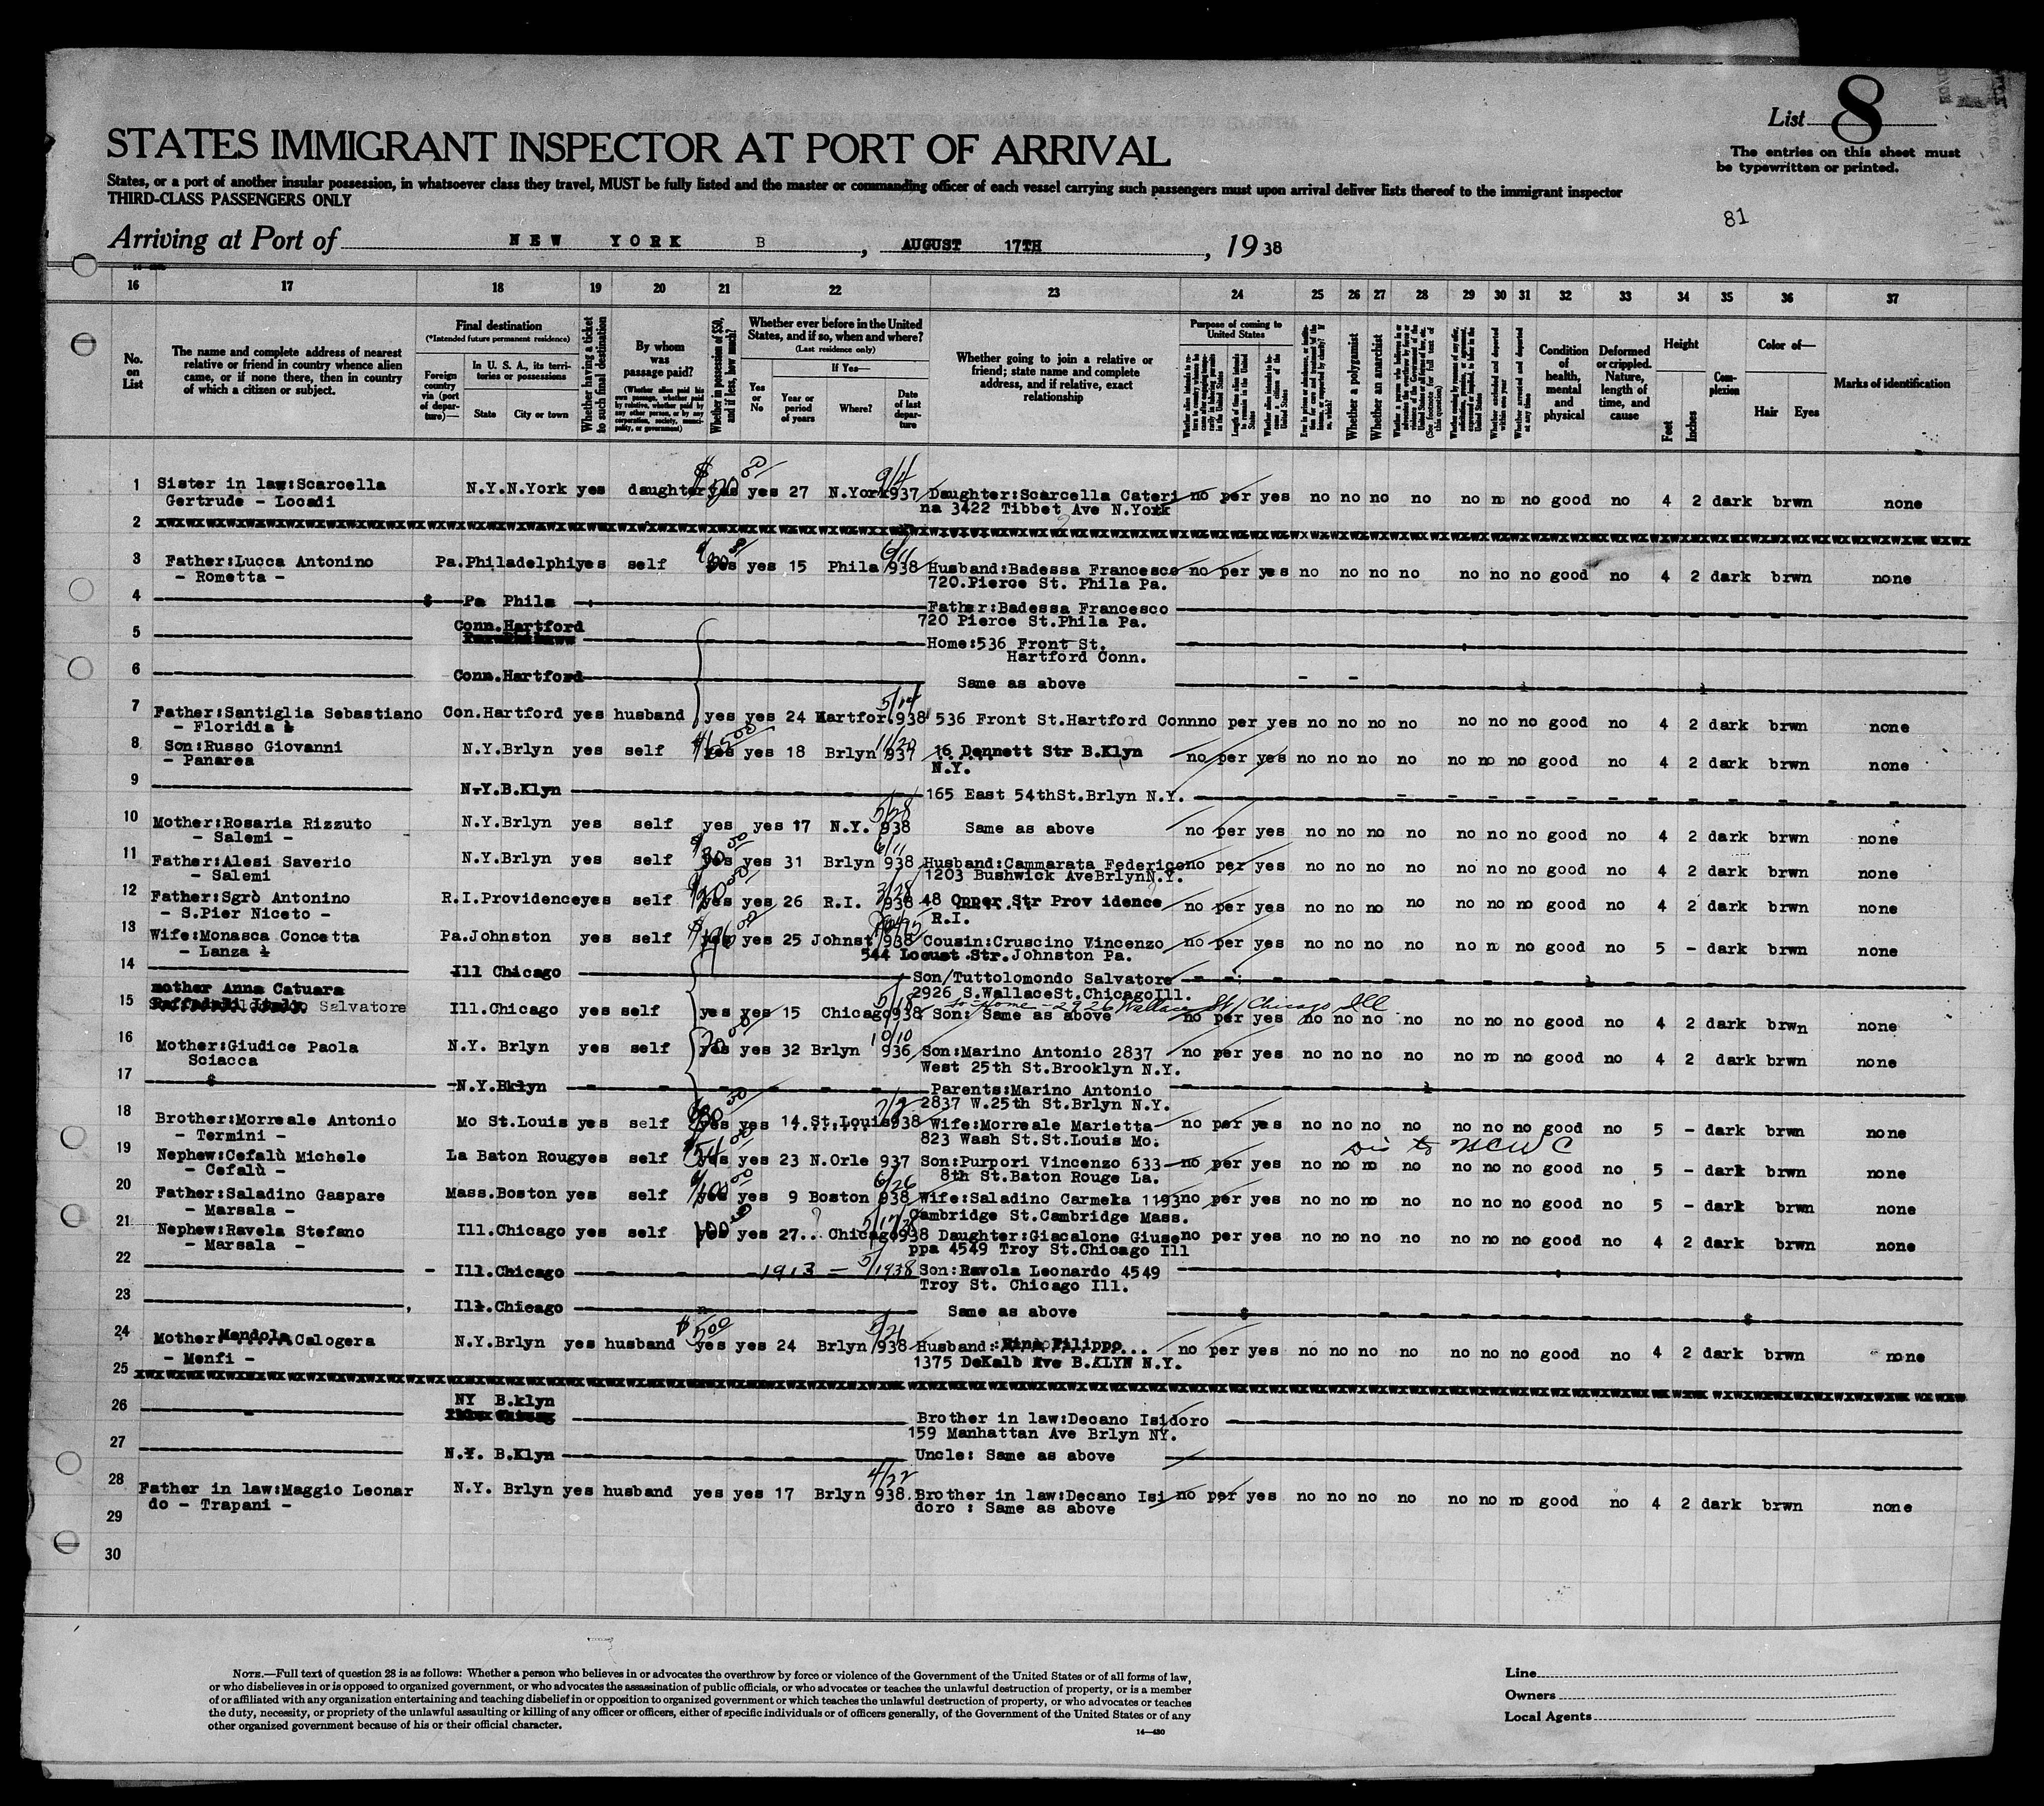 List 8
STATES IMMIGRANT INSPECTOR AT PORT OF ARRIVAL
The entries on this sheet must
be typewritten or printed.
States, or a port of another insular possession, in whatsoever class they travel, MUST be fully listed and the master or commanding officer of each vessel carrying such passengers must upon arrival deliver lists thereof to the immigrant inspector
THIRD-CLASS PASSENGERS ONLY
81
Arriving at Port of NEW YORK B, AUGUST 17TH, 1938
16 17 18 19 20 21 22 23 24 25 26 27 28 29 30 31 32 33 34 35 36 37
No. on List
The name and complete address of nearest relative or friend in country whence alien came, or if none there, then in country of which a citizen or subject.
Final destination
(*Intended future permanent residence)
Foreign country via (port of departure)—
In U. S. A., its territories or possessions
State City or town
Whether having a ticket to such final destination
By whom was passage paid?
(Whether alien paid his own passage, whether paid by relative, whether paid by any other person, or by any corporation, society, municipality, or government)
Whether in possession of $50, and if less, how much?
Whether ever before in the United States, and if so, when and where?
(Last residence only)
Yes or No
If Yes—
Year or period of years
Where?
Date of last departure
Whether going to join a relative or friend; state name and complete address, and if relative, exact relationship
Purpose of coming to United States
Whether a polygamist
Whether an anarchist
Condition of health, mental and physical
Deformed or crippled. Nature, length of time, and cause
Height
Feet Inches
Complexion
Color of—
Hair Eyes
Marks of identification
1 Sister in law:Scarcella N.Y.N.York yes daughter yes yes 27 N.York 937 Daughter:Scarcella Cateri no per yes no no no no no no no good no 4 2 dark brwn none
Gertrude - Locadi na 3422 Tibbet Ave N.York
2
3 Father:Lucca Antonino Pa.Philadelphiyes self yes yes 15 Phila 6/11 938 Husband:Badessa Francesco no per yes no no no no no no no good no 4 2 dark brwn none
- Rometta - 720.Pierce St. Phila Pa.
4 Pa Phila Father:Badessa Francesco
720 Pierce St.Phila Pa.
5 Conn.Hartford Home:536 Front St.
Hartford Conn.
6 Conn.Hartford Same as above
7 Father:Santiglia Sebastiano Con.Hartford yes husband yes yes 24 Hartfor.5/14 938 536 Front St.Hartford Connno per yes no no no no no no no good no 4 2 dark brwn none
- Floridia
8 Son:Russo Giovanni N.Y.Brlyn yes self yes yes 18 Brlyn 11/20 937 16 Dennett Str B.Klyn no per yes no no no no no no no good no 4 2 dark brwn none
- Panarea N.Y.
9 N.Y.B.Klyn 165 East 54thSt.Brlyn N.Y.
10 Mother:Rosaria Rizzuto N.Y.Brlyn yes self yes yes 17 N.Y. 5/28 938 Same as above no per yes no no no no no no no good no 4 2 dark brwn none
- Salemi -
11 Father:Alesi Saverio N.Y.Brlyn yes self $30.00 yes yes 31 Brlyn 6/11 938 Husband:Cammarata Federicono per yes no no no no no no no good no 4 2 dark brwn none
- Salemi 1203 Bushwick AveBrlynN.Y.
12 Father:Sgrò Antonino R.I.Providenceyes self yes yes 26 R.I. 3/28 938 48 Opper Str Prov idence no per yes no no no no no no no good no 4 2 dark brwn none
- S.Pier Niceto - R.I.
13 Wife:Monasca Concetta Pa.Johnston yes self yes yes 25 Johnst 938 Cousin:Cruscino Vincenzo no per yes no no no no no no no good no 5 - dark brwn none
- Lanza 544 Locust Str.Johnston Pa.
14 Ill Chicago Son/Tuttolomondo Salvatore
2926 S.WallaceSt.ChicagoIll.
mother Anna Catuara
15 Raffadali Italy Salvatore Ill.Chicago yes self yes yes 15 Chicago 5/18 938 Son: Same as above no per yes no no no no no no no good no 4 2 dark brwn none
to home - 2926 Wallace St, Chicago Ill
16 Mother:Giudice Paola N.Y. Brlyn yes self yes yes 32 Brlyn 10/10 936 Son:Marino Antonio 2837 no per yes no no no no no no no good no 4 2 dark brwn none
Sciacca West 25th St.Brooklyn N.Y.
17 N.Y.Bklyn Parents:Marino Antonio
2837 W.25th St.Brlyn N.Y.
18 Brother:Morreale Antonio Mo St.Louis yes self yes yes 14 St.Louis 938 Wife:Morreale Marietta no per yes no no no no no no no good no 5 - dark brwn none
- Termini - 823 Wash St.St.Louis Mo.
Dis to NCWC
19 Nephew:Cefalù Michele La Baton Rougyes self yes yes 23 N.Orle 937 Son:Purpori Vincenzo 633 no per yes no no no no no no no good no 5 - dark brwn none
- Cefalù - 8th St.Baton Rouge La.
20 Father:Saladino Gaspare Mass.Boston yes self $100.00 yes yes 9 Boston 6/26 938 Wife:Saladino Carmela 1193no per yes no no no no no no no good no 5 - dark brwn none
- Marsala - Cambridge St.Cambridge Mass.
21 Nephew:Ravela Stefano Ill.Chicago yes self 100 yes yes 27.. Chicago 5/17/38 938 Daughter:Giacalone Giuseno per yes no no no no no no no good no 4 2 dark brwn none
- Marsala - ppa 4549 Troy St.Chicago Ill
22 Ill.Chicago 1913 - 5/1938 Son:Ravola Leonardo 4549
Troy St. Chicago Ill.
23 Ill.Chicago Same as above
24 Mother:Mendola Calogera N.Y.Brlyn yes husband $500 yes yes 24 Brlyn 5/21 938 Husband: Filippo no per yes no no no no no no no good no 4 2 dark brwn none
- Menfi - 1375 DeKalb Ave B.KLYN N.Y.
25
26 NY B.klyn Brother in law:Decano Isidoro
159 Manhattan Ave Brlyn NY.
27 N.Y. B.Klyn Uncle: Same as above
28 Father in law:Maggio Leonar N.Y. Brlyn yes husband yes yes 17 Brlyn 4/22 938. Brother in law:Decano Isi no per yes no no no no no no no good no 4 2 dark brwn none
do - Trapani - doro : Same as above
29
30
NOTE.—Full text of question 28 is as follows: Whether a person who believes in or advocates the overthrow by force or violence of the Government of the United States or of all forms of law,
or who disbelieves in or is opposed to organized government, or who advocates the assassination of public officials, or who advocates or teaches the unlawful destruction of property, or is a member
of or affiliated with any organization entertaining and teaching disbelief in or opposition to organized government or which teaches the unlawful destruction of property, or who advocates or teaches
the duty, necessity, or propriety of the unlawful assaulting or killing of any officer or officers, either of specific individuals or of officers generally, of the Government of the United States or of any
other organized government because of his or their official character.
14—430
Line
Owners
Local Agents